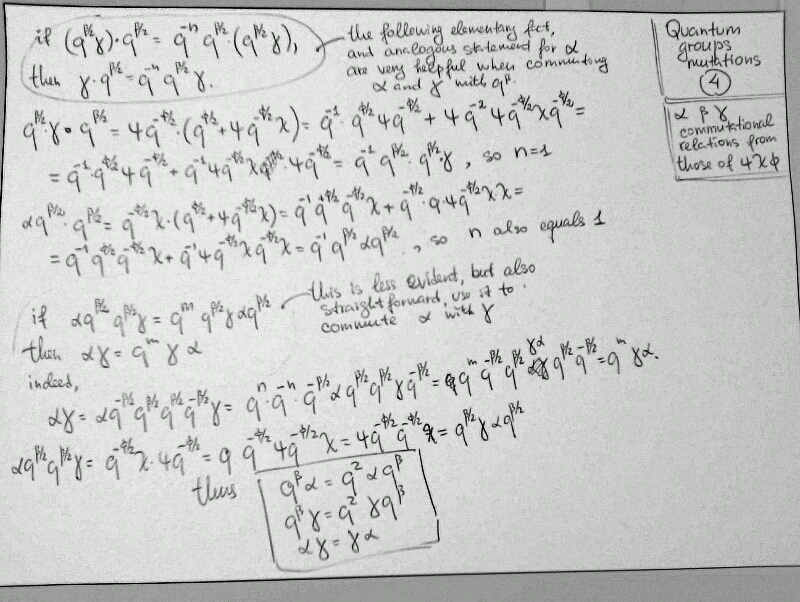 if (q^{β/2}γ)·q^{β/2} = q^{-n} q^{β/2}·(q^{β/2}γ),
then γ·q^{β/2} = q^{-n} q^{β/2} γ.
the following elementary fact,
and analogous statement for α
are very helpful when commuting
α and γ with q^β.
Quantum
groups
mutations
4
α β γ
commutational
relations from
those of ψ χ ϕ
q^{β/2}γ · q^{β/2} = ψq^{-ϕ/2}·(q^{ϕ/2}+ψq^{-ϕ/2}χ) = q^{-1}·q^{ϕ/2}ψq^{-ϕ/2} + ψq^{-2}ψq^{-ϕ/2}χq^{-ϕ/2} =
= q^{-1}·q^{ϕ/2}ψq^{-ϕ/2} + q^{-1}ψq^{-ϕ/2}χ·ψq^{-ϕ/2} = q^{-1} q^{β/2}·q^{β/2}γ, so n=1
αq^{β/2}·q^{β/2} = q^{-ϕ/2}χ·(q^{ϕ/2}+ψq^{-ϕ/2}χ) = q^{-1}q^{ϕ/2}q^{-ϕ/2}χ + q^{-ϕ/2}·q·ψq^{-ϕ/2}χχ =
= q^{-1}q^{ϕ/2}q^{-ϕ/2}χ + q^{-1}ψq^{-ϕ/2}χq^{-ϕ/2}χ = q^{-1}q^{β/2}αq^{β/2}, so n also equals 1
if αq^{β/2} q^{β/2}γ = q^m q^{β/2}γαq^{β/2}
then αγ = q^m γα
this is less evident, but also
straightforward, use it to
commute α with γ
indeed,
αγ = αq^{-β/2}q^{β/2}q^{β/2}q^{-β/2}γ = q^n q^{-n} q^{-β/2} α q^{β/2} q^{β/2} γ q^{-β/2} = q^m q^{-β/2} q^{β/2} γα q^{β/2} q^{-β/2} = q^m γα.
αq^{β/2}q^{β/2}γ = q^{-ϕ/2}χ·ψq^{-ϕ/2} = q q^{-ϕ/2}ψq^{-ϕ/2}χ = ψq^{-ϕ/2}q^{-ϕ/2}χ = q^{β/2}γαq^{β/2}
thus
q^β α = q^2 α q^β
q^β γ = q^2 γ q^β
αγ = γα